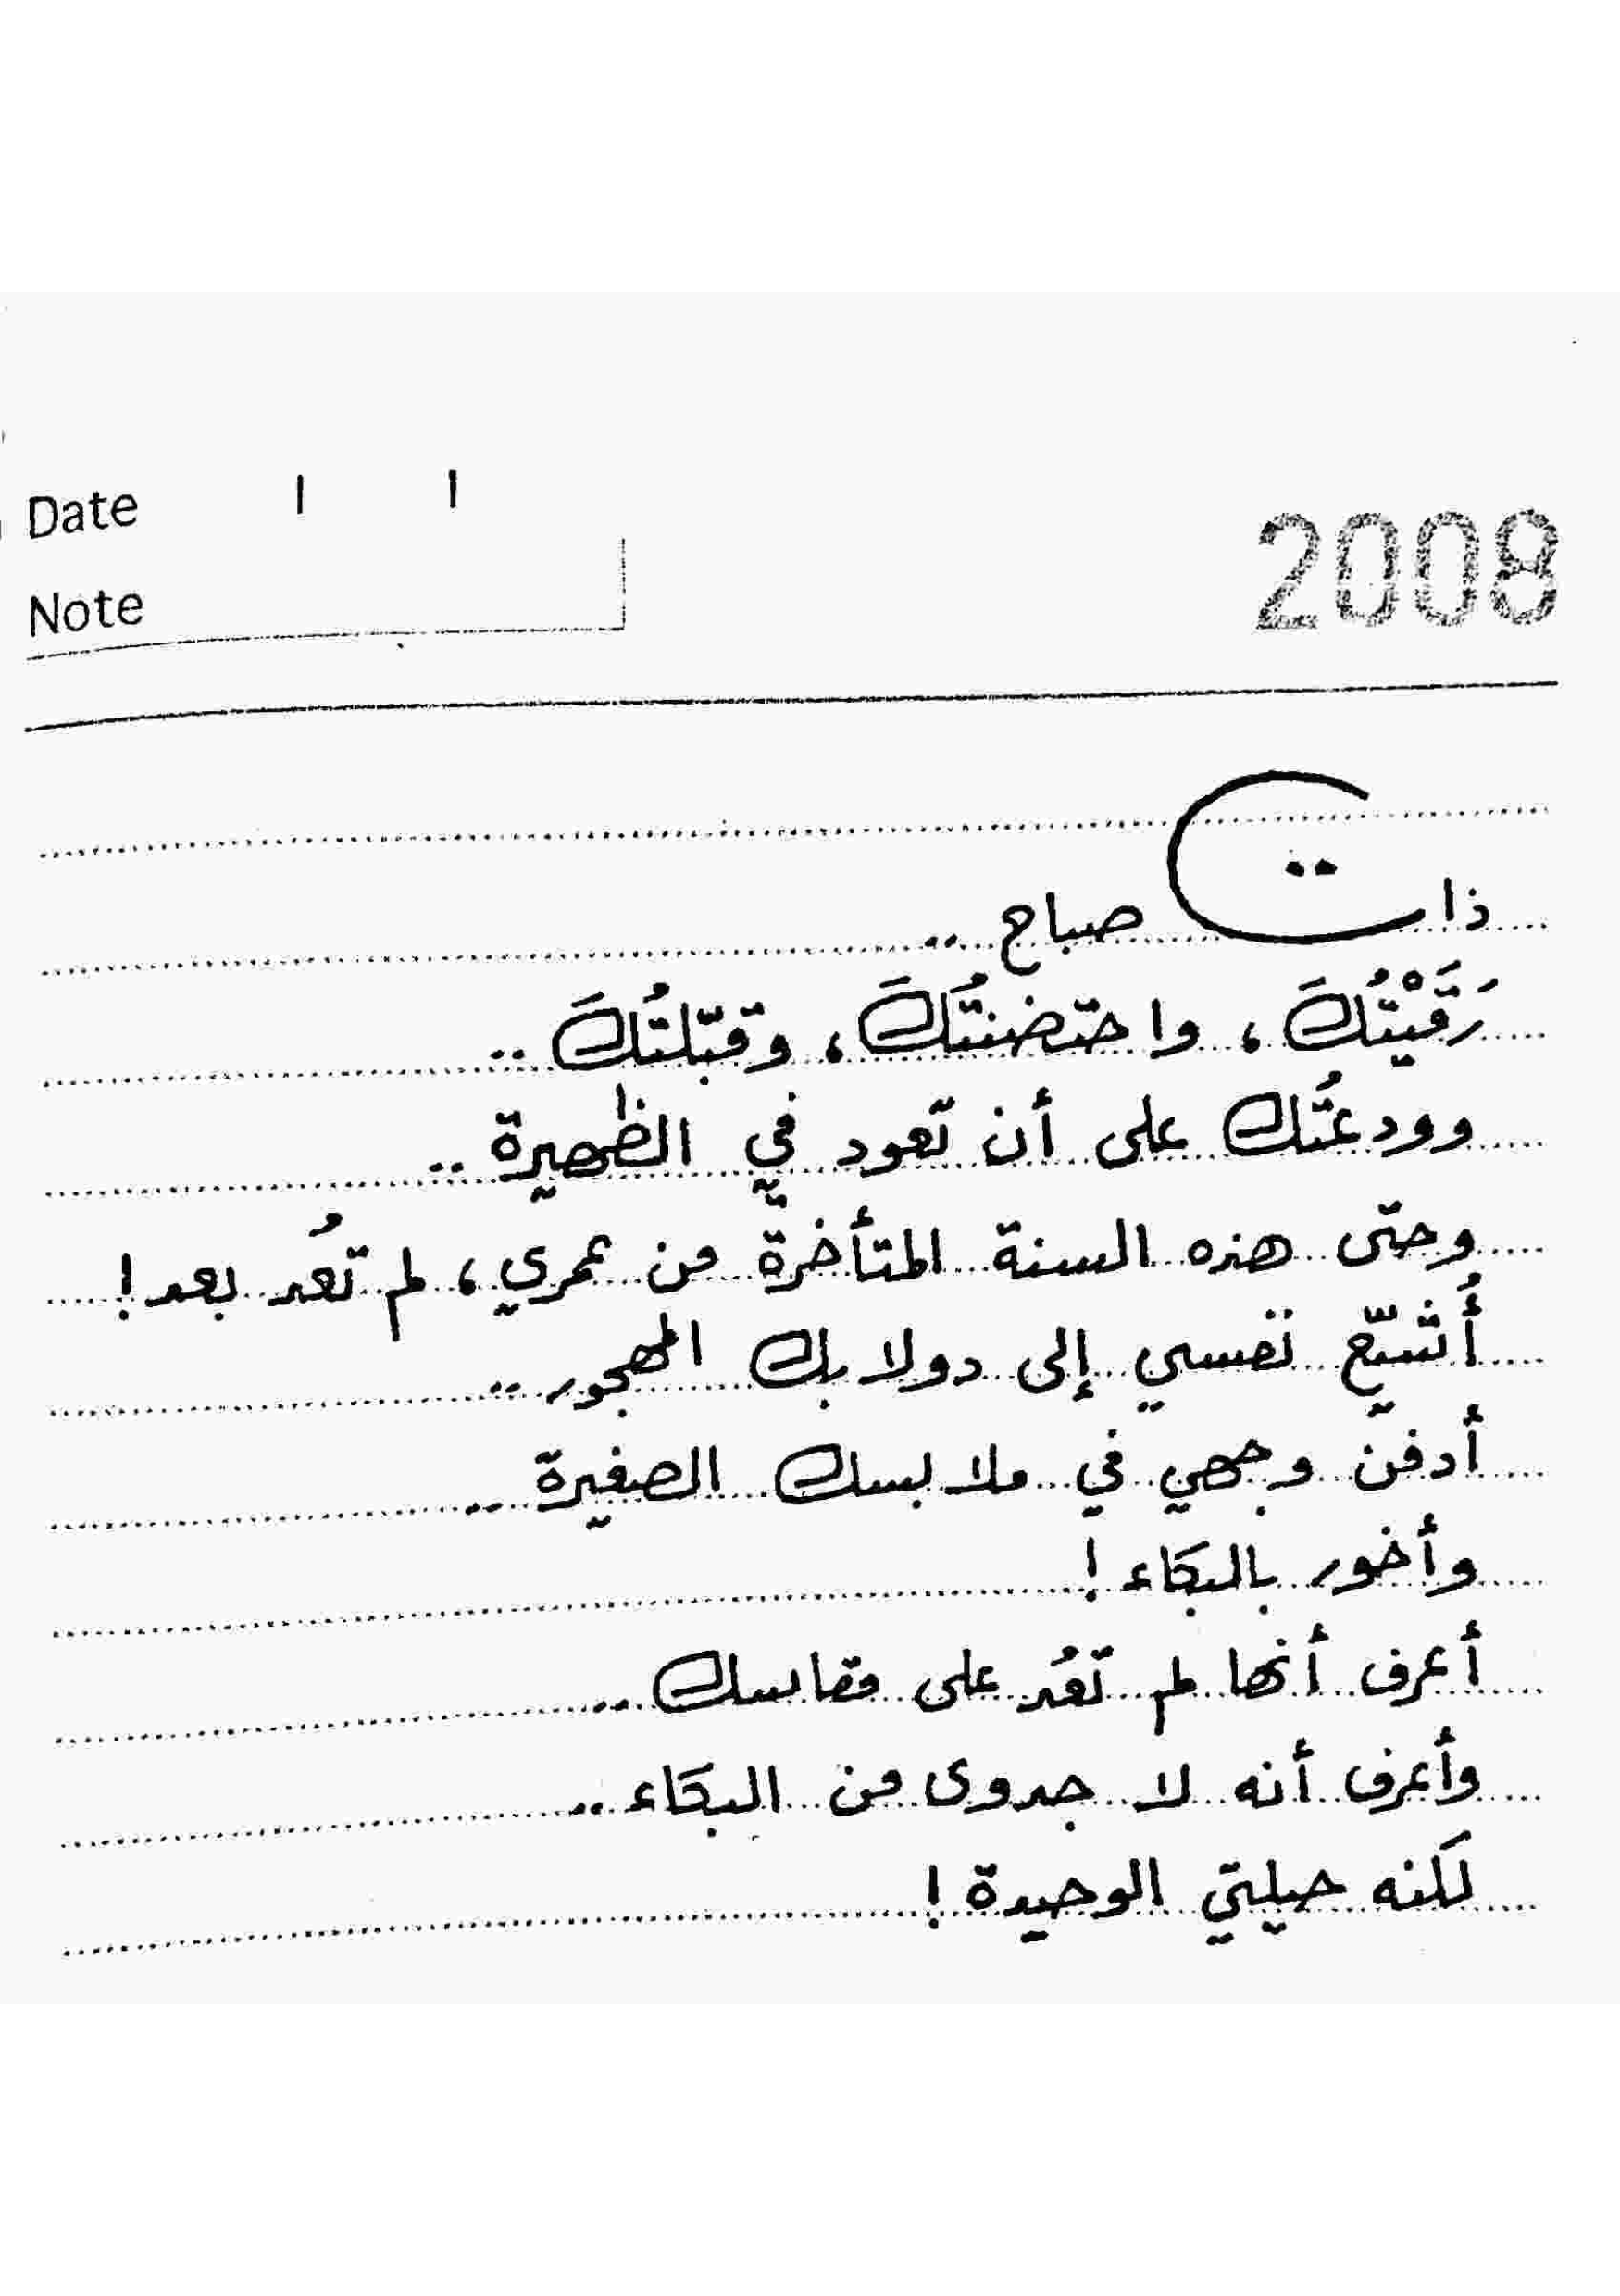 Date / /
2008
Note
ذات صباح ..
رَقَيْتُكَ ، واحتضنتُكَ ، وقبّلتُكَ ..
وودعتُك على أن تعود في الظهيرة ..
وحتى هذه السنة المتأخرة من عمري ، لم تعُد بعد !
أُشيّع نفسي إلى دولابك المهجور ..
أدفن وجهي في ملابسك الصغيرة ..
وأخور بالبكاء !
أعرف أنها لم تعُد على مقاسك ..
وأعرف أنه لا جدوى من البكاء ..
لكنه حيلتي الوحيدة !